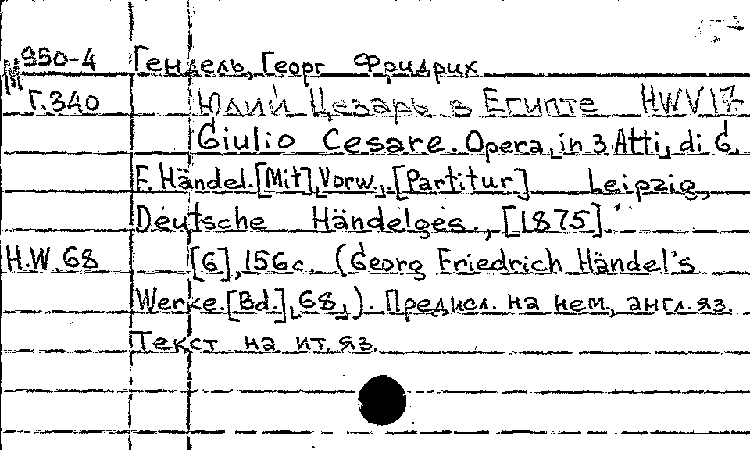 М 950-4 Гендель, Георг Фридрих
Г.340 Юлий Цезарь в Египте HWV 17
Giulio Cesare. Opera in 3 Atti di G.
F. Händel. [Mit] Vorw. [Partitur] Leipzig,
Deutsche Händelges., [1875].
H.W. 68 [6], 156 с. (Georg Friedrich Händel's
Werke. [Bd.] 68). Предисл. на нем., англ. яз.
Текст на ит. яз.